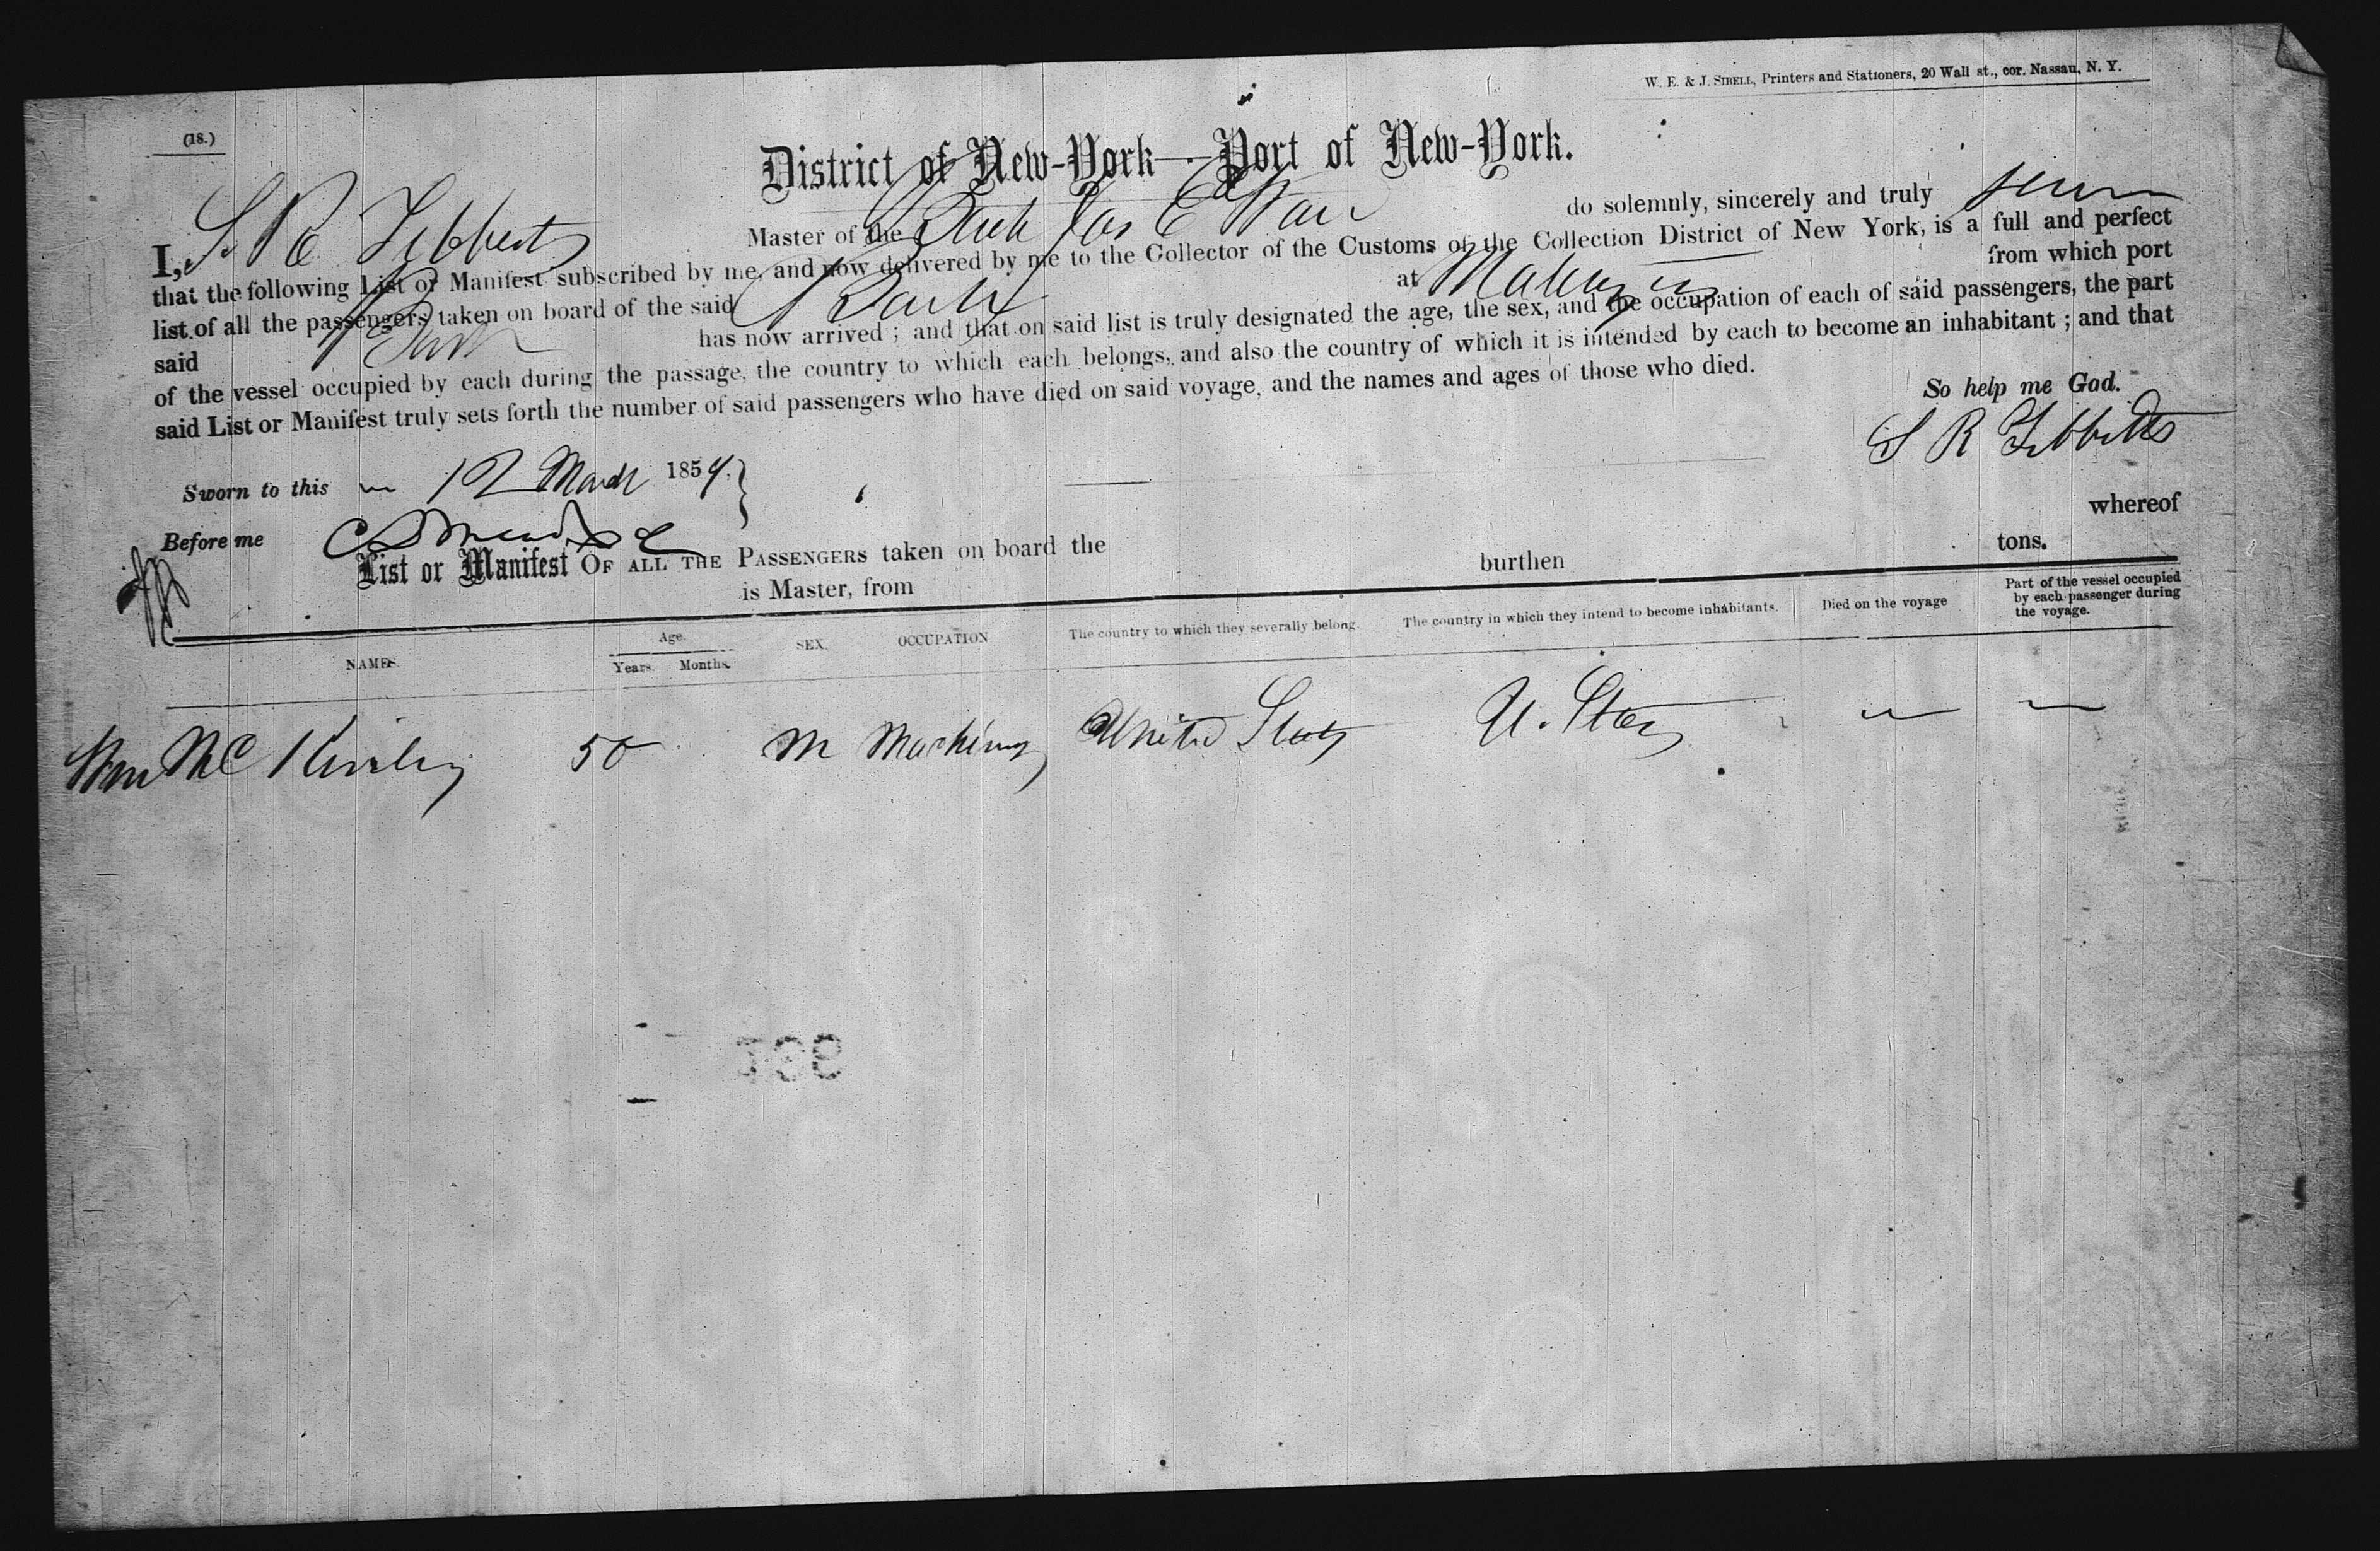 W. E. & J. SIBELL, Printers and Stationers, 20 Wall st., cor. Nassau, N. Y.
(18.)
District of New-York—Port of New-York.
I, S. R. Tebbets Master of the Bark Jas E do solemnly, sincerely and truly swear
that the following List or Manifest subscribed by me, and now delivered by me to the Collector of the Customs of the Collection District of New York, is a full and perfect
list of all the passengers taken on board of the said Bark at from which port
said Bark has now arrived; and that on said list is truly designated the age, the sex, and the occupation of each of said passengers, the part
of the vessel occupied by each during the passage, the country to which each belongs, and also the country of which it is intended by each to become an inhabitant; and that
said List or Manifest truly sets forth the number of said passengers who have died on said voyage, and the names and ages of those who died.
So help me God.
S R Tebbetts
Sworn to this 12 March 1854.
Before me
List or Manifest OF ALL THE PASSENGERS taken on board the whereof
is Master, from burthen tons.
NAMES. Age. Years. Months. SEX. OCCUPATION The country to which they severally belong. The country in which they intend to become inhabitants. Died on the voyage Part of the vessel occupied by each passenger during the voyage.
Wm McKinley 50 M United States U. States — —